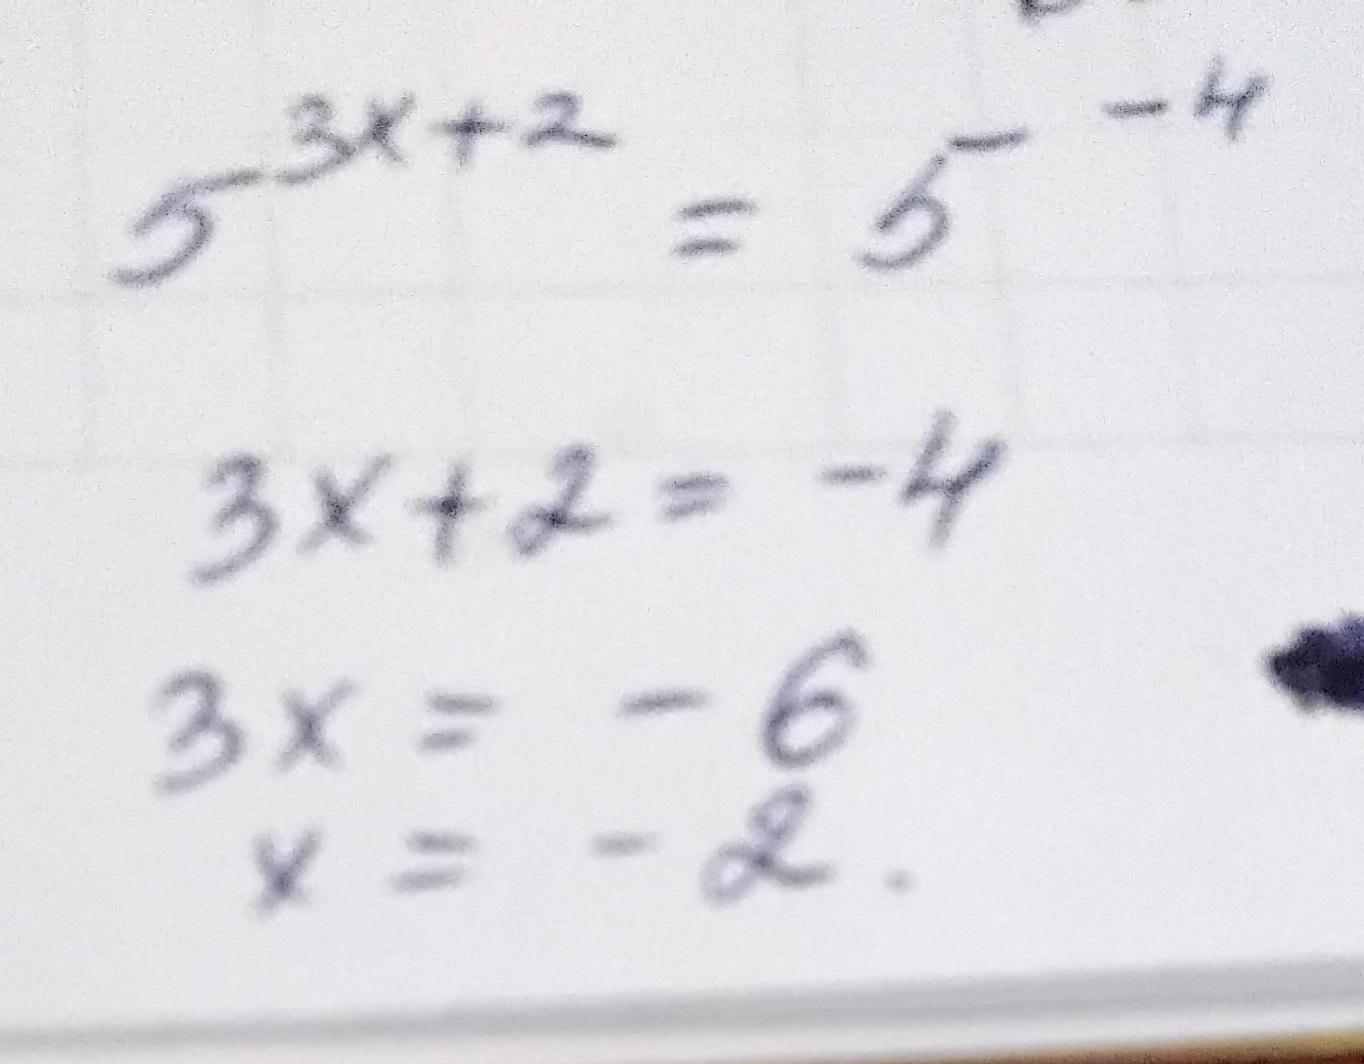 5^{3x+2} = 5^{-4}
3x+2 = -4
3x = -6
x = -2.